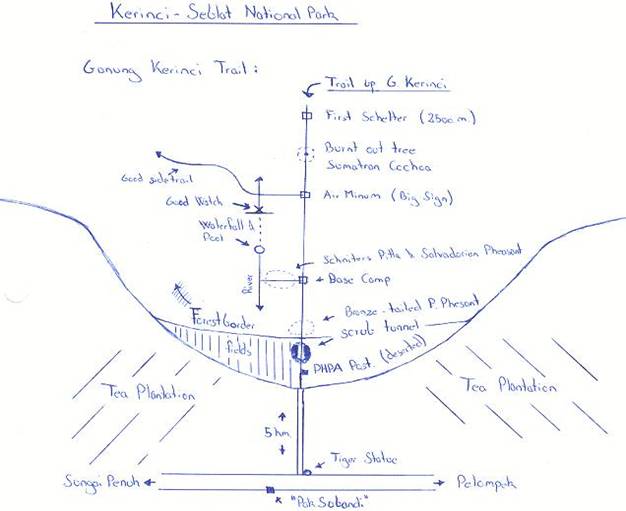 Kerinci - Seblat National Park
Gunung Kerinci Trail :
Trail up G. Kerinci
First Schelter (2500 m.)
Burnt out tree
Sumatran Cochoa
Good sidetrail
Good Watch
Air Minum (Big Sign)
Waterfall &
Pool
Schniders Pitta & Salvadorien Pheasant
River
Base Camp
Bronze-tailed P. Phesant
Forest border
Scrub tunnel
fields
PHPA Post. (deserted)
Tea Plantation
Tea Plantation
5 km.
Tiger Statue
Sungai Penuh
Pelompek
"Pak Subandi"